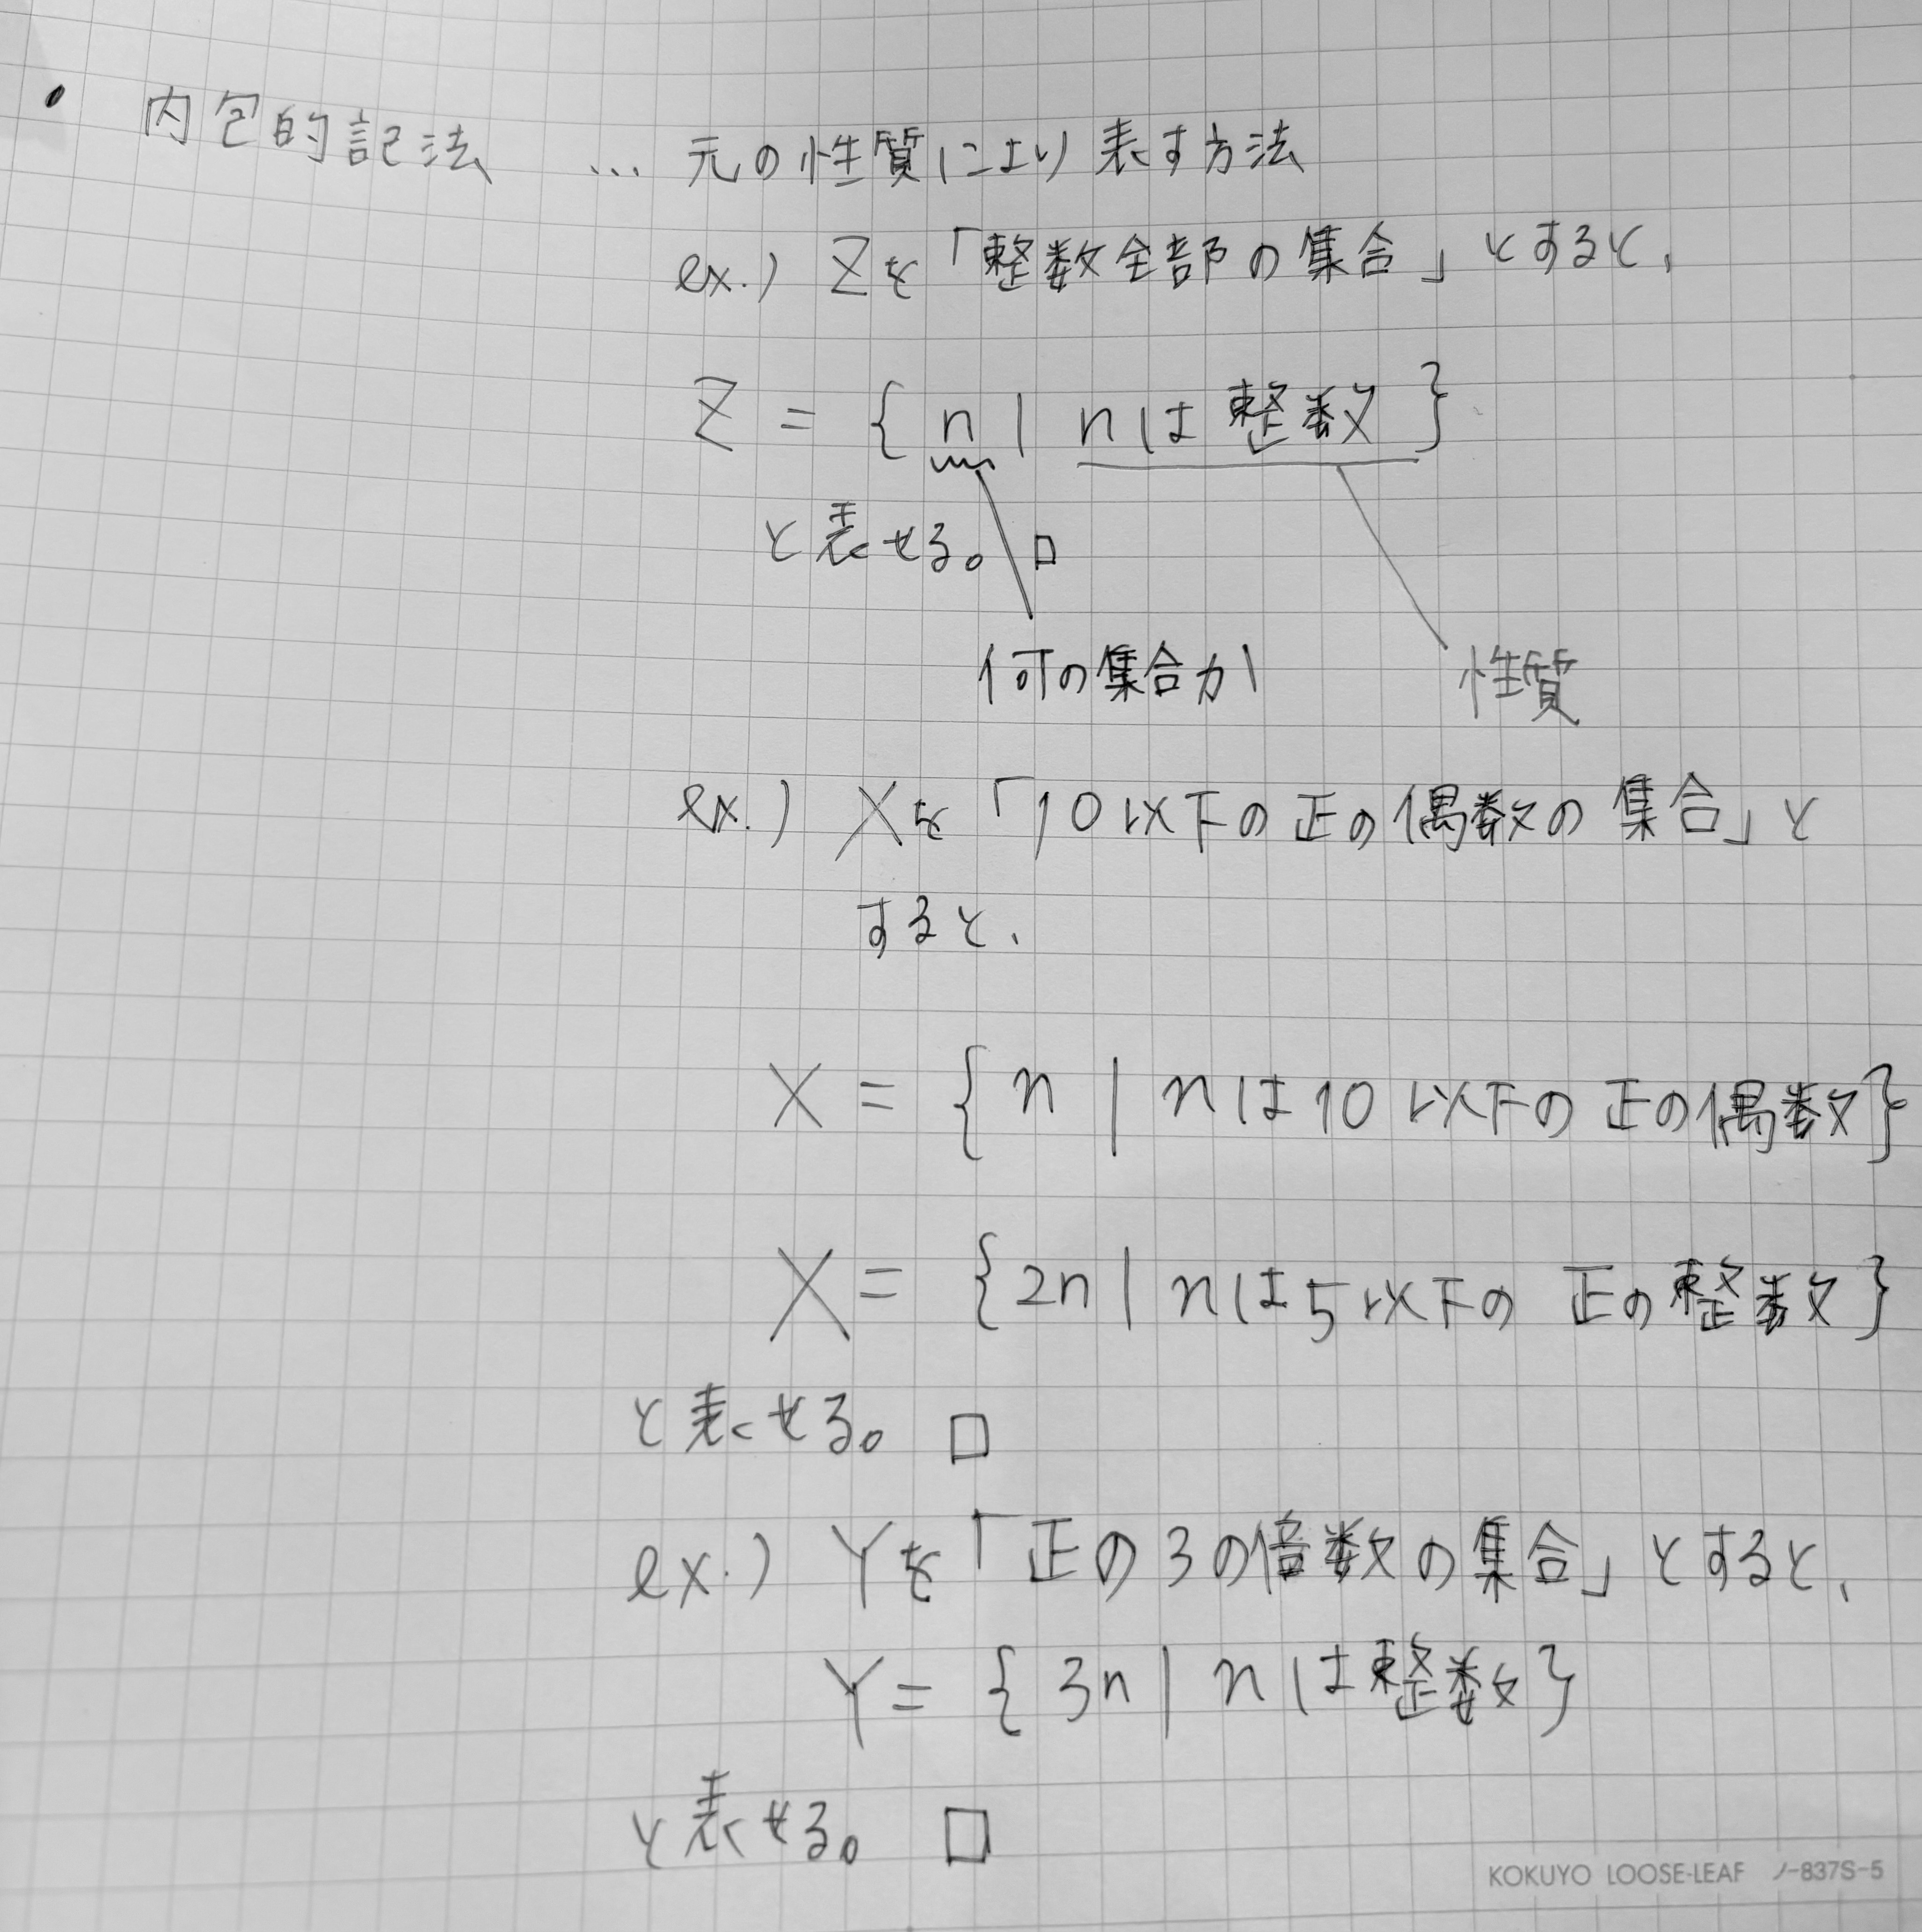 ・ 内包的記法 … 元の性質により表す方法
ex.) Zを「整数全部の集合」とすると、
Z = { n | nは整数 }
と表せる。□
何の集合か 性質
ex.) Xを「10以下の正の偶数の集合」と
すると、
X = { n | nは10以下の正の偶数}
X = {2n | nは5以下の正の整数}
と表せる。 □
ex.) Yを「正の3の倍数の集合」とすると、
Y = { 3n | nは整数}
と表せる。 □
KOKUYO LOOSE-LEAF ノ-837S-5